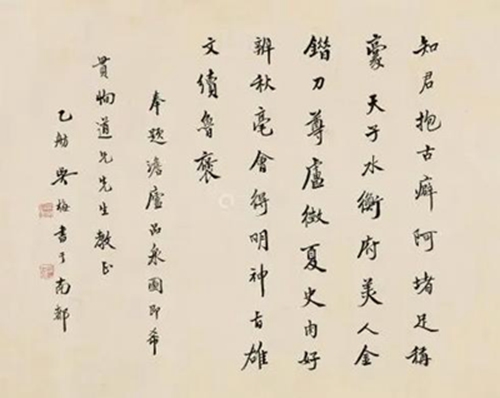 知君抱古癖阿堵足稱
豪天子水衡府美人金
錯刀尊盧徵夏史肉好
辨秋毫會得明神旨雄
文續魯褒
奉題澹廬品泉圖即希
貫恂道兄先生教正
乙舫吳梅書于南都